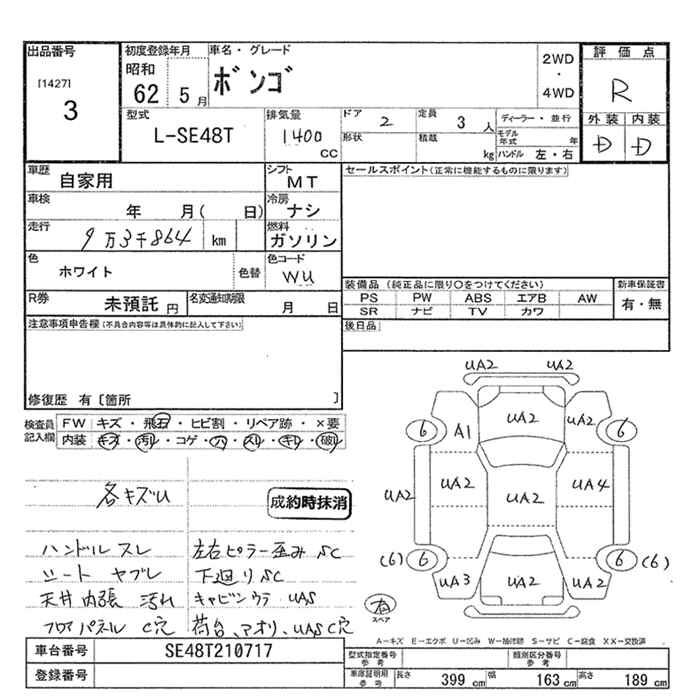 出品番号
[1427]
3
初度登録年月
昭和
62 5月
車名・グレード
ボンゴ
2WD
・
4WD
評価点
R
外装 内装
D D
型式
L-SE48T
排気量
1400
CC
ドア
2
定員
3 人
ディーラー・並行
形状
積載
kg
モデル年式 年
ハンドル 左・右
車歴
自家用
シフト
MT
セールスポイント(正常に機能するものに限ります)
車検
年 月( 日)
冷房
ナシ
走行
9万3千864 km
燃料
ガソリン
色
ホワイト
色替
色コード
WU
装備品(純正品に限り○をつけてください)
新車保証書
PS PW ABS エアB AW
有・無
SR ナビ TV カワ
R券
未預託 円
名変通知期限
月 日
後日品
注意事項申告欄(不具合内容等は具体的に記入して下さい)
修復歴 有〔箇所 〕
検査員記入欄
FW キズ・飛石・ヒビ割・リペア跡・×要
内装 キズ・汚れ・コゲ・穴・スレ・キレ・破れ
各キズU
成約時抹消
ハンドルスレ
シートヤブレ
天井内張 汚れ
フロアパネル C穴
左右ピラー歪みSC
下廻りSC
キャビンウラ UAS
荷台、アオリ、UAS C穴
UA2 UA2
6 A1 UA2 UA2 6
UA2 UA2 UA2 UA4
(6) 6 6 (6)
UA3 UA2 UA2
有
スペア
A-キズ E-エクボ U-凹み W-補修跡 S-サビ C-腐食 XX-交換済
車台番号
SE48T210717
登録番号
型式指定番号
参考
類別区分番号
参考
車庫証明用
参考
長さ 399 cm
幅 163 cm
高さ 189 cm